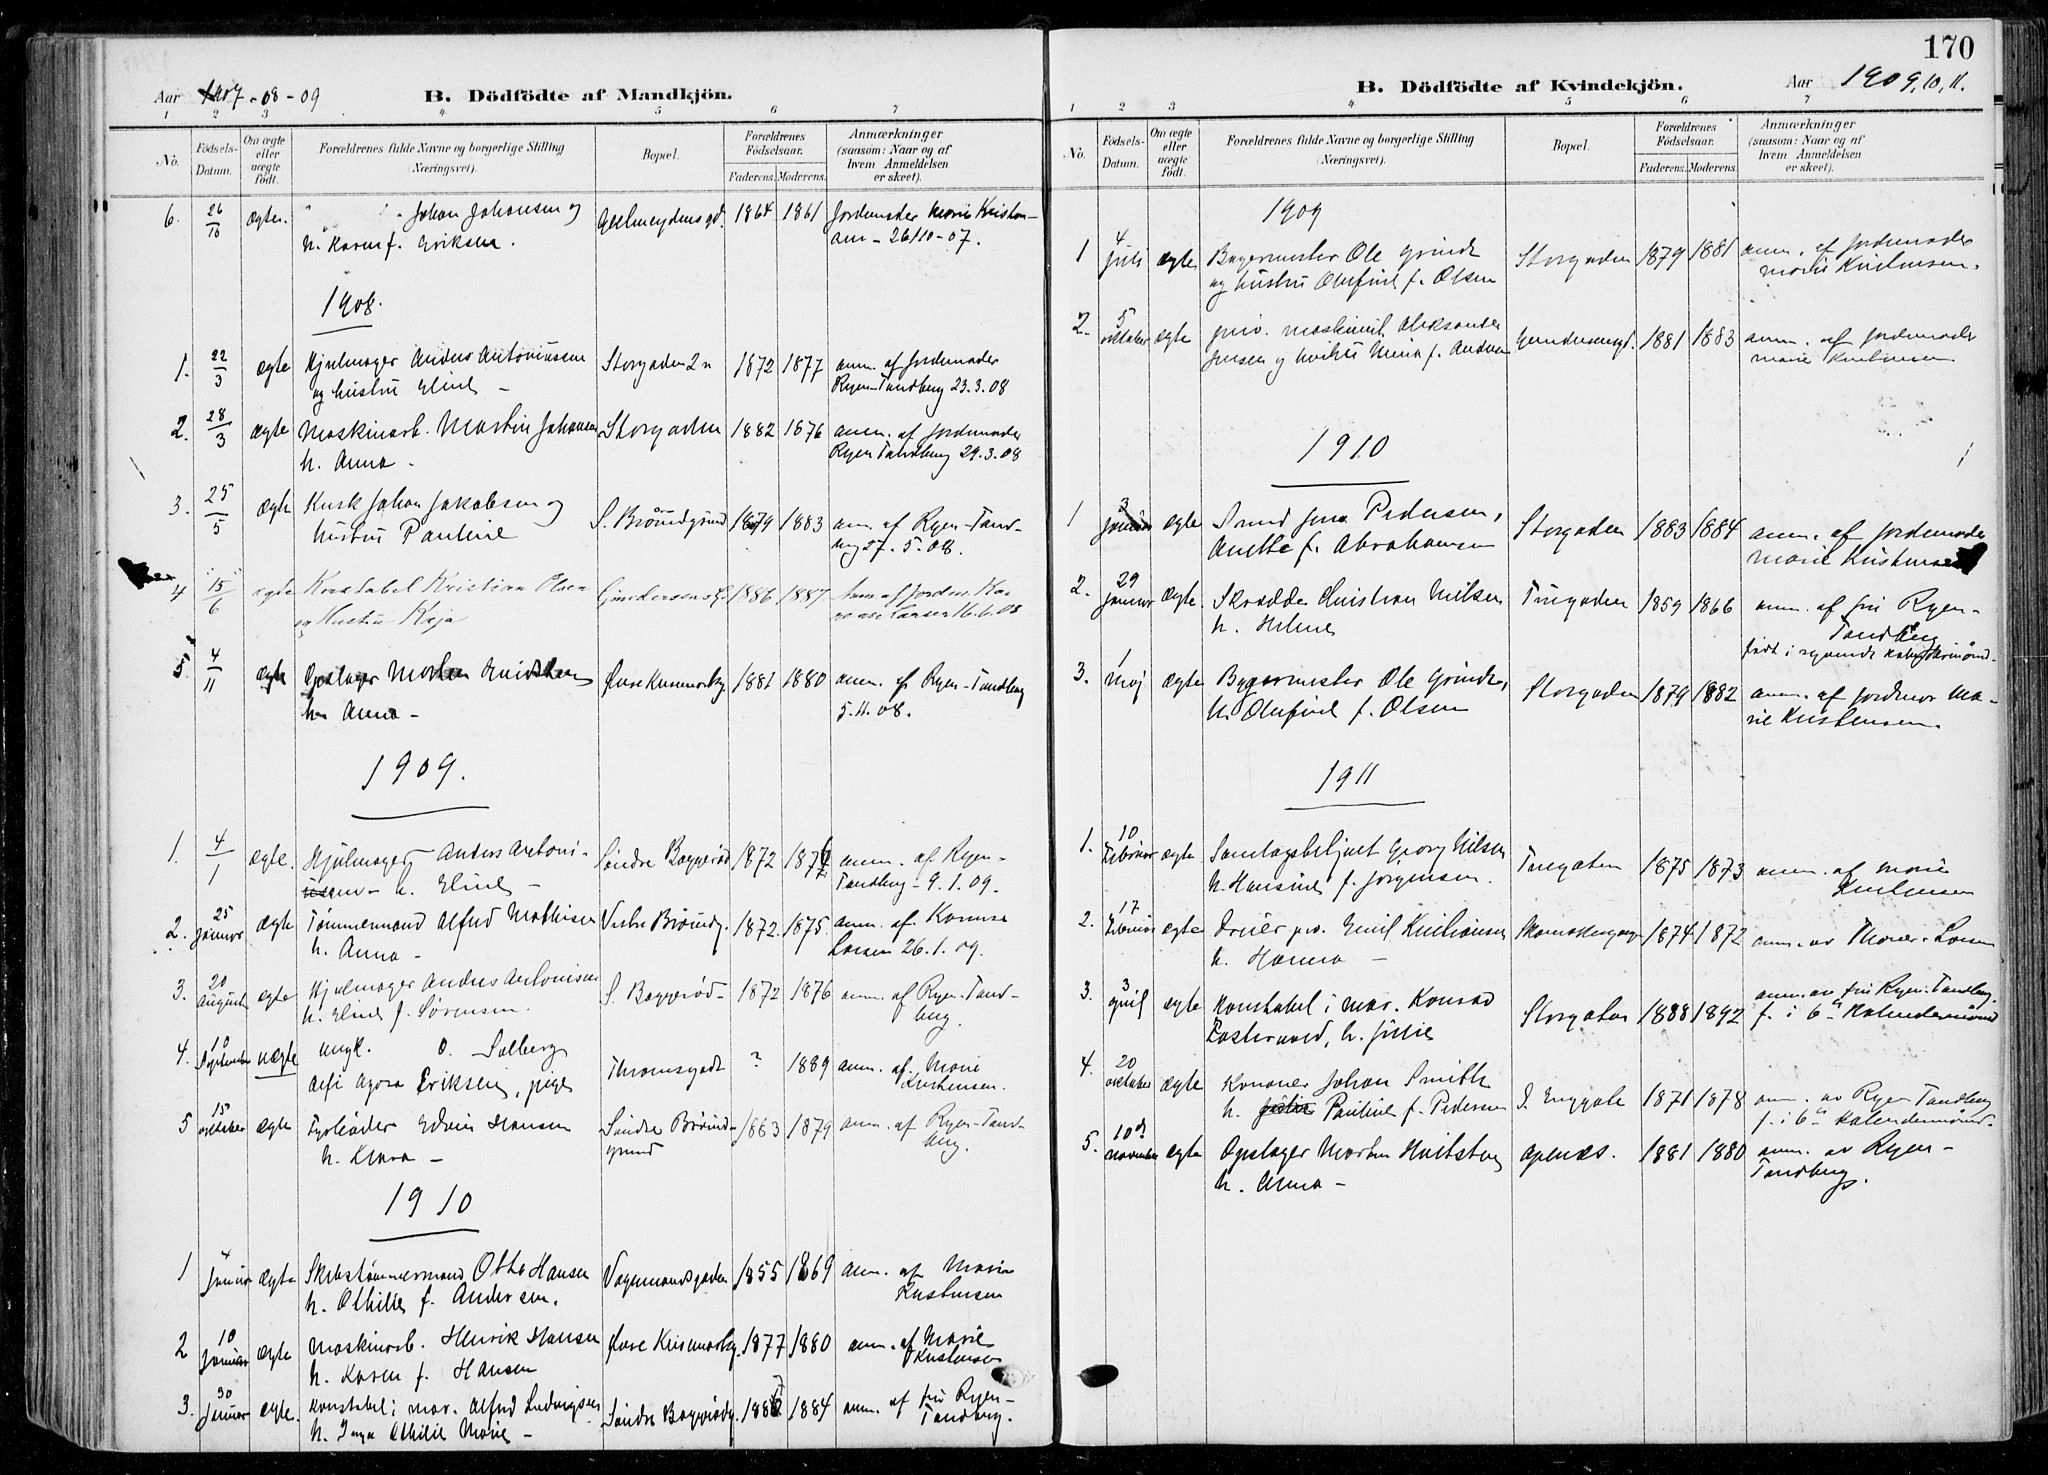 Aar 1907-08-09 B. Dödfödte af Mandkjön.
1 2 3 4 5 6 7
No. Födsels-Datum. Om ægte eller uægte födt. Forældrenes fulde Navne og borgerlige Stilling (Næringsvei). Bopæl. Forældrenes Födselsaar. Faderens. Moderens. Anmærkninger (saasom: Naar og af hvem Anmeldelsen er skeet).
6. 26/10 ægte. " " Johan Johansen og 1864 1861 Jordemoder Marie Kristen-
h. Karen f. Eriksen. sen - 26/10-07.
1908.
1. 22/3 ægte Hjulmager Anders Antoniussen Storgaden 2 1872 1877 anm. af Jordemoder
og hustru Eline - Ryen-Tandberg 23.3.08
2. 28/3 ægte Maskinarb. Martin Johansen Storgaden 1882 1876 anm. af Jordemoder
h. Anna - Ryen Tandberg 29.3.08
3. 25/5 ægte Kusk Johan Jakobsen og S. Brøndgrund 1879 1883 anm. af Ryen-Tand-
hustru Pauline berg 27.5.08.
4 15/6 ægte Konstabel Kristian Olsen Gundersensg. 1886 1887 Anm af Jordem Ka-
og Hustru Kaja Larsen 16.6.08
5. 4/11 ægte Opslager Morten 1881 1880 anm. af Ryen-Tandberg
h. Anna - 5.11.08.
1909.
1. 4/1 ægte. Hjulmager Anders Antoni- Søndre Baggerød 1872 1877 anm. af Ryen-
usen - h. Eline - Tandberg - 9.1.09.
2. 25 januar ægte Tømmermand Alfred Mathisen Vestre Brøndg. 1872. 1875. anm. af
h. Anna - Larsen 26.1.09.
3. 20 august ægte Hjulmager Anders Antonisen S. Baggerød - 1872 1876 anm. af Ryen-Tand-
h. Eline f. Sørensen. berg.
4. 10 September uægte ungk. O. Solberg Thomsgade ? 1889 anm. af Marie
Agora Eriksen, pige Kristensen.
5 15 oktober ægte Fyrbøder Edvin Hansen Søndre Brønd- 1883 1879 anm. af Ryen-Tand-
h. Klara - grund berg.
1910
1 4 januar ægte Skibstømmermand Otto Hansen Vognmandsgaden 1855 1869 anm. af Marie
h. Othilie f. Andersen. Kristensen
2 10 januar ægte Maskinarb. Henrik Hansen 1877 1880 anm. af Marie
h. Karen f. Hansen Kristensen
3. 30 januar ægte. Konstabel i mar. Alfred Ludvigsen Søndre Baggerødg. 1884 anm. af fru Ryen-
h. Inga Othilie Marie - Tandberg.
170
B. Dödfödte af Kvindekjön. Aar 1909, 10, 11.
1 2 3 4 5 6 7
No. Födsels-Datum. Om ægte eller uægte födt. Forældrenes fulde Navne og borgerlige Stilling (Næringsvei). Bopæl. Forældrenes Födselsaar. Faderens. Moderens. Anmærkninger (saasom: Naar og af hvem Anmeldelsen er skeet).
1909
1 4 juli ægte Bagermester Ole Grinde Storgaden 1879 1881 anm. af Jordemoder
og hustru Olufine f. Olsen Marie Kristensen.
2. 5 oktober ægte priv. maskinist Aleksander Gundersensgd. 1881 1883 anm. af Jordemoder
Jensen og hustru f. Andersen Marie Kristensen
1910
1 3 januar ægte Smed Jens Pedersen, Storgaden 1883 1884 anm. af Jordemoder
Anette f. Abrahamsen Marie Kristensen
2. 29 januar ægte. Skrædder Christian Nilsen Tungaden 1859 1866 anm. af fru Ryen-
h. Helene Tandberg
født i syvende kalendermånd.
3. 1 maj ægte Bagermester Ole Grinde, Storgaden 1879 1882 anm. af Jordemor Ma-
h. Olufine f. Olsen rie Kristensen.
1911
1. 10 februar ægte Georg Nilsen Tungaten 1875 1873 anm. af Marie
h. Hansine f. Jørgensen. Kristensen
2. 17 februar ægte Emil Kristiansen 1874 1872 anm. av Larsen
h. Hanna -
3. 3 april ægte Konstabel i mar. Konrad Storgaten 1888 1892 anm. av fru Ryen-Tandberg.
h. Julie f. i 6te Kalendermånd
4. 20 oktober ægte Johan Smith 1871 1878 anm. av Ryen Tandberg
h. Pauline f. Pedersen f. i 6te kalendermånd.
5. 10de november ægte Opslager Morten Hvitsten Apenes. 1881 1880 anm. av Ryen-
h. Anna - Tandberg.